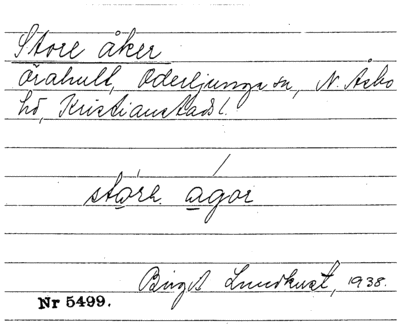 Store åker
Örahult, Oderljunga sn, N. Åsbo
hd, Kristianstads l.
störe ågor
Birgit Lundkvist, 1938.
Nr 5499.